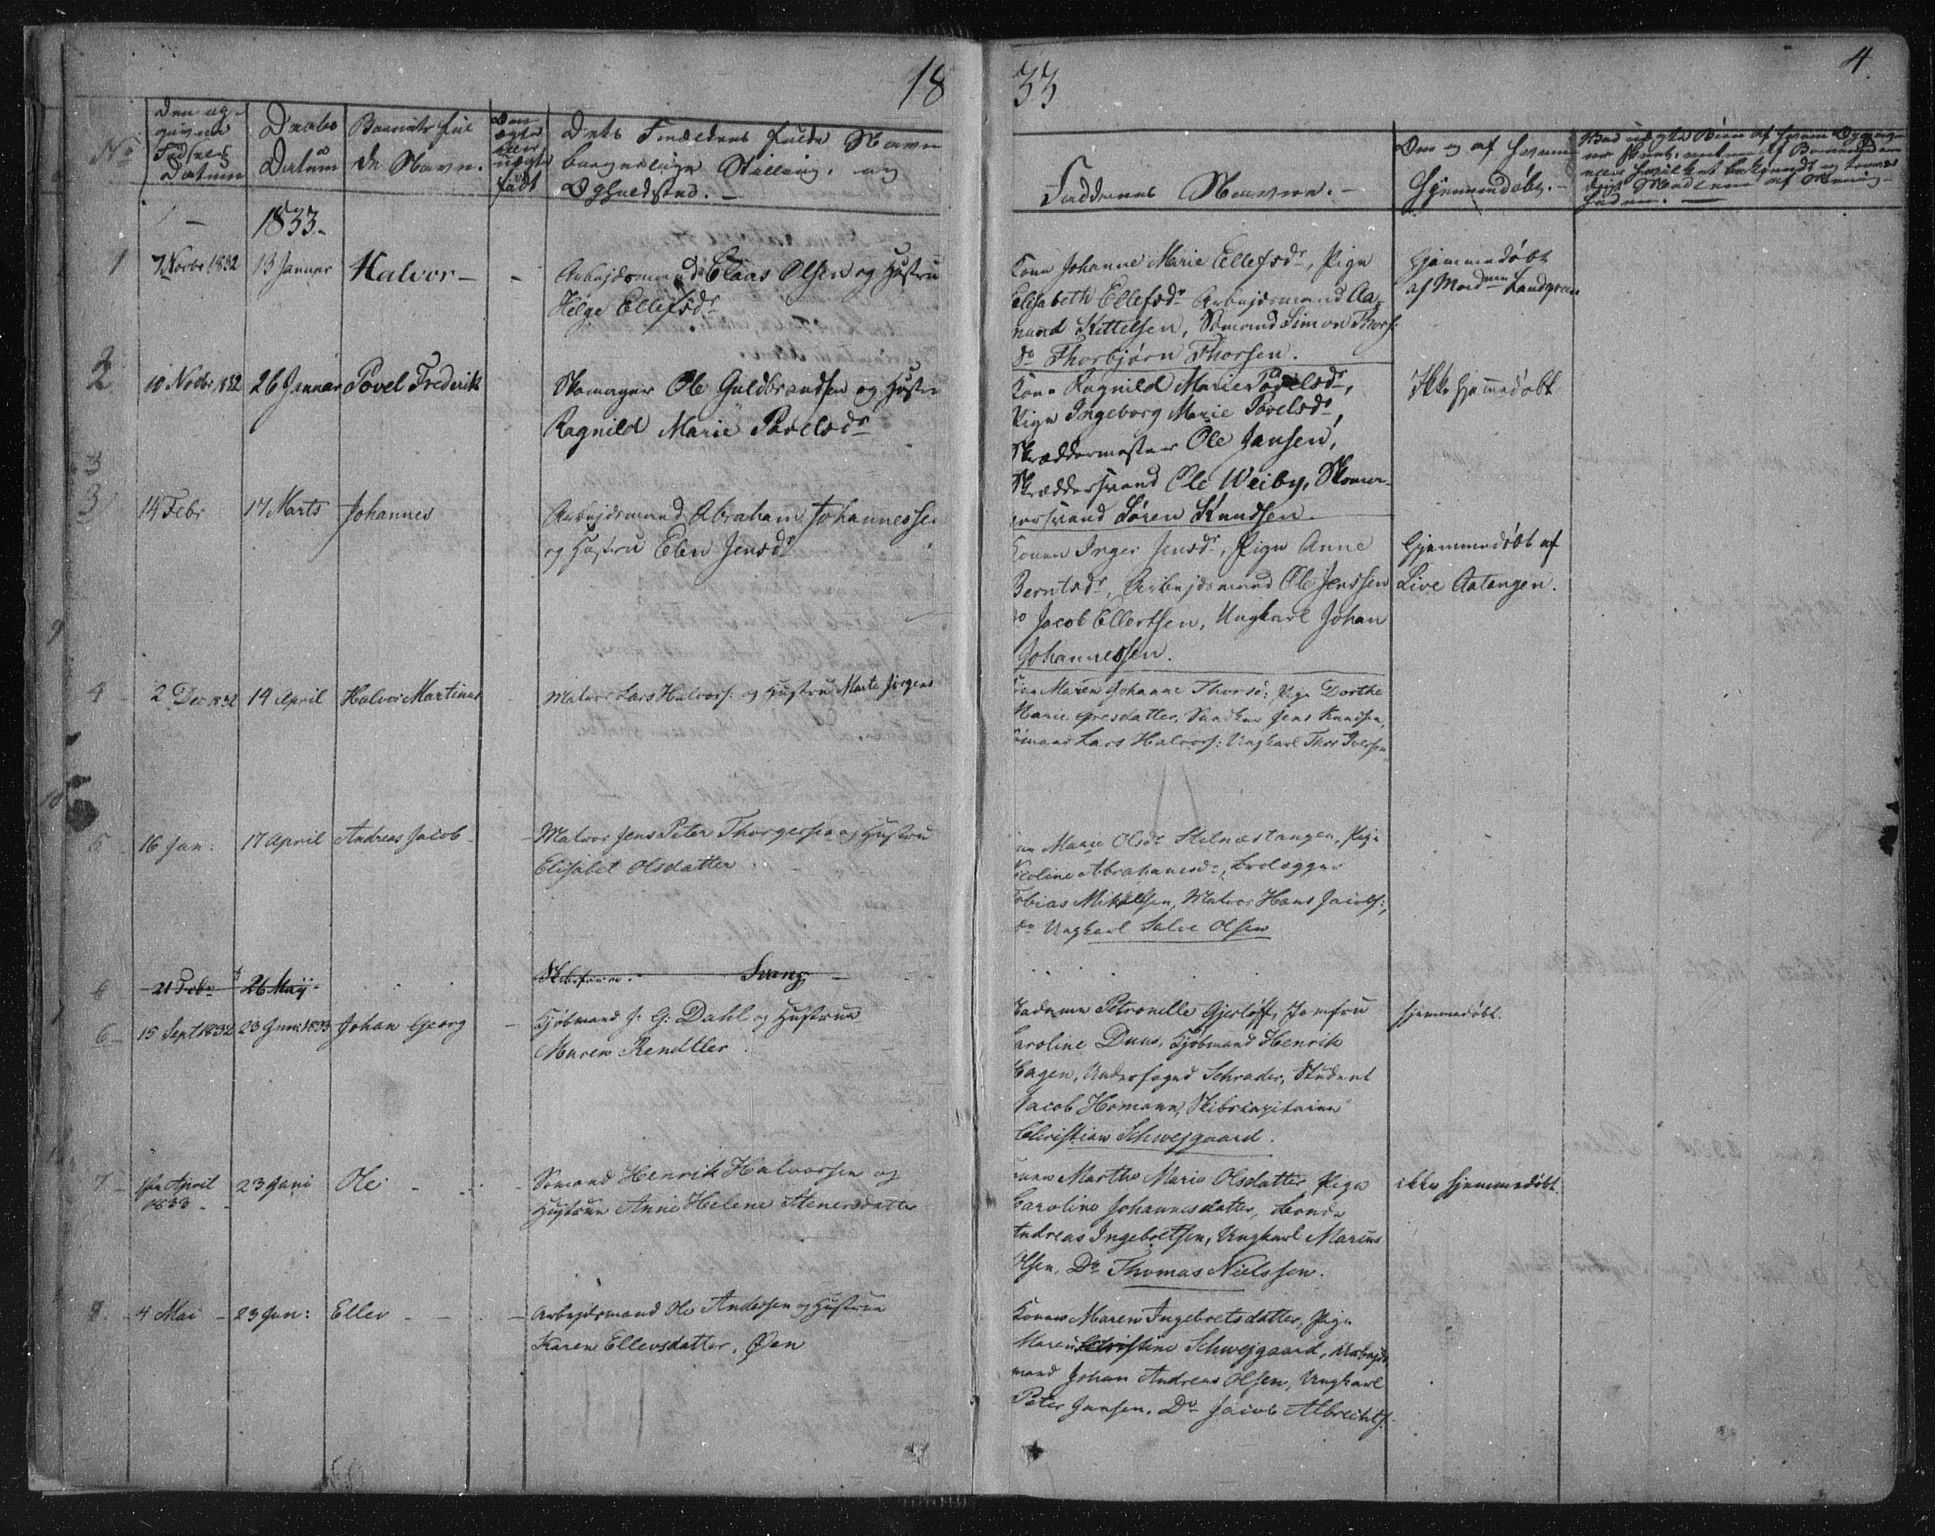 18
33
4.
No
Den op-
givne
Fødsels
Datum
Daabs
Datum
Barnets ful
de Navn.
født
Dets Forældres fulde Navn
borgerlige Stilling, og
Opholdsted. -
Faddernes Navne. -
Om og af hvem
hjemmedøbt. -
1833.
1
7 Novbr 1832
13 Januar
Halvor -
Arbejdsmand Claus Olsen og Hustru
Helge Ellefsdr
Kone Johanne Marie Ellefsdr, Pige
Elisabeth Ellefsdr Arbejdsmand Aa-
nund Kittelsen, Sømand Simon Thors:
do Thorbjørn Thorsen.
Hjemmedøbt
af Madme Landgreen
2
10 Novbr 1832
26 Januar
Povel Frederik
Skomager Ole Guldbrandsen og Hustru
Ragnild Marie Povelsdr
Kone Ragnild Marie Povelsdr,
Pige Ingeborg Marie Povelsdr,
Skræddermester Ole Jansen,
Skræddersvend Ole Weiby, Skoma-
gersvend Søren Knudsen.
Ikke hjemmedøbt
3
3
14 Febr
17 Marts
Johannes
Arbejdsmand Abraham Johannessen
og Hustru Elen Jensdr
Konen Inger Jensdr, Pige Anne
Berntsdr, Arbejdsmand Ole Jenssen
do Jacob Ellertsen, Ungkarl Johan
Johannessen.
Hjemmedøbt af
Live Aatangen.
4
2 Dec 1832
14 April
Halvor Martinus
Matros Lars Halvors: og Hustru Marte Jørgens
Kone Maren Johanne Thorsd: Pige Dorthe
Marie Gresdatter, Jens Knudsen,
Sømand Lars Halvors: Ungkarl Thor Iversen
5
16 Jan:
17 April
Andreas Jacob
Matros Jens Peter Thorgersen og Hustru
Elisabet Olsdatter
Marie Olsdr Stelnæstangen, Pige
Nicoline Abrahamsdr, Brolægger
Tobias Mikkelsen, Matros Hans Jacobs:,
do Ungkarl Salve Olsen
6
21 Febr
26 Maij
Svang
6
15 Sept 1832
23 Juni 1833
Johan Georg
Kjøbmand J: G: Dahl og Hustrue
Maren Rendtler.
Madame Petronelle Gjerløff, Jomfru
Caroline Duus, Kjøbmand Henrik
Hagen, Underfoged Schrader, Student
Jacob Homann, Skibscapitaine
Christian Schwejgaard.
hjemmedøbt.
7
April
1833
23 Juni
Ole
Sømand Henrik Halvorsen og
Hustrue Anne Helene Stenersdatter
Konen Marthe Marie Olsdatter, Pige
Caroline Johannesdatter, Bonde
Andreas Ingebretsen, Ungkarl Marius
Olsen, Do Thomas Nielssen.
ikke hjemmedøbt.
8.
4 Mai
23 Jun:
Ellev
Arbejdsmand Ole Andersen og Hustrue
Karen Ellevsdatter, Øen
Konen Maren Ingebretsdatter, Pige
Maren Christine Schwejgaard, Arbejds
mand Johan Andreas Olsen, Ungkarl
Peter Jansen, Do Jacob Albrechts: